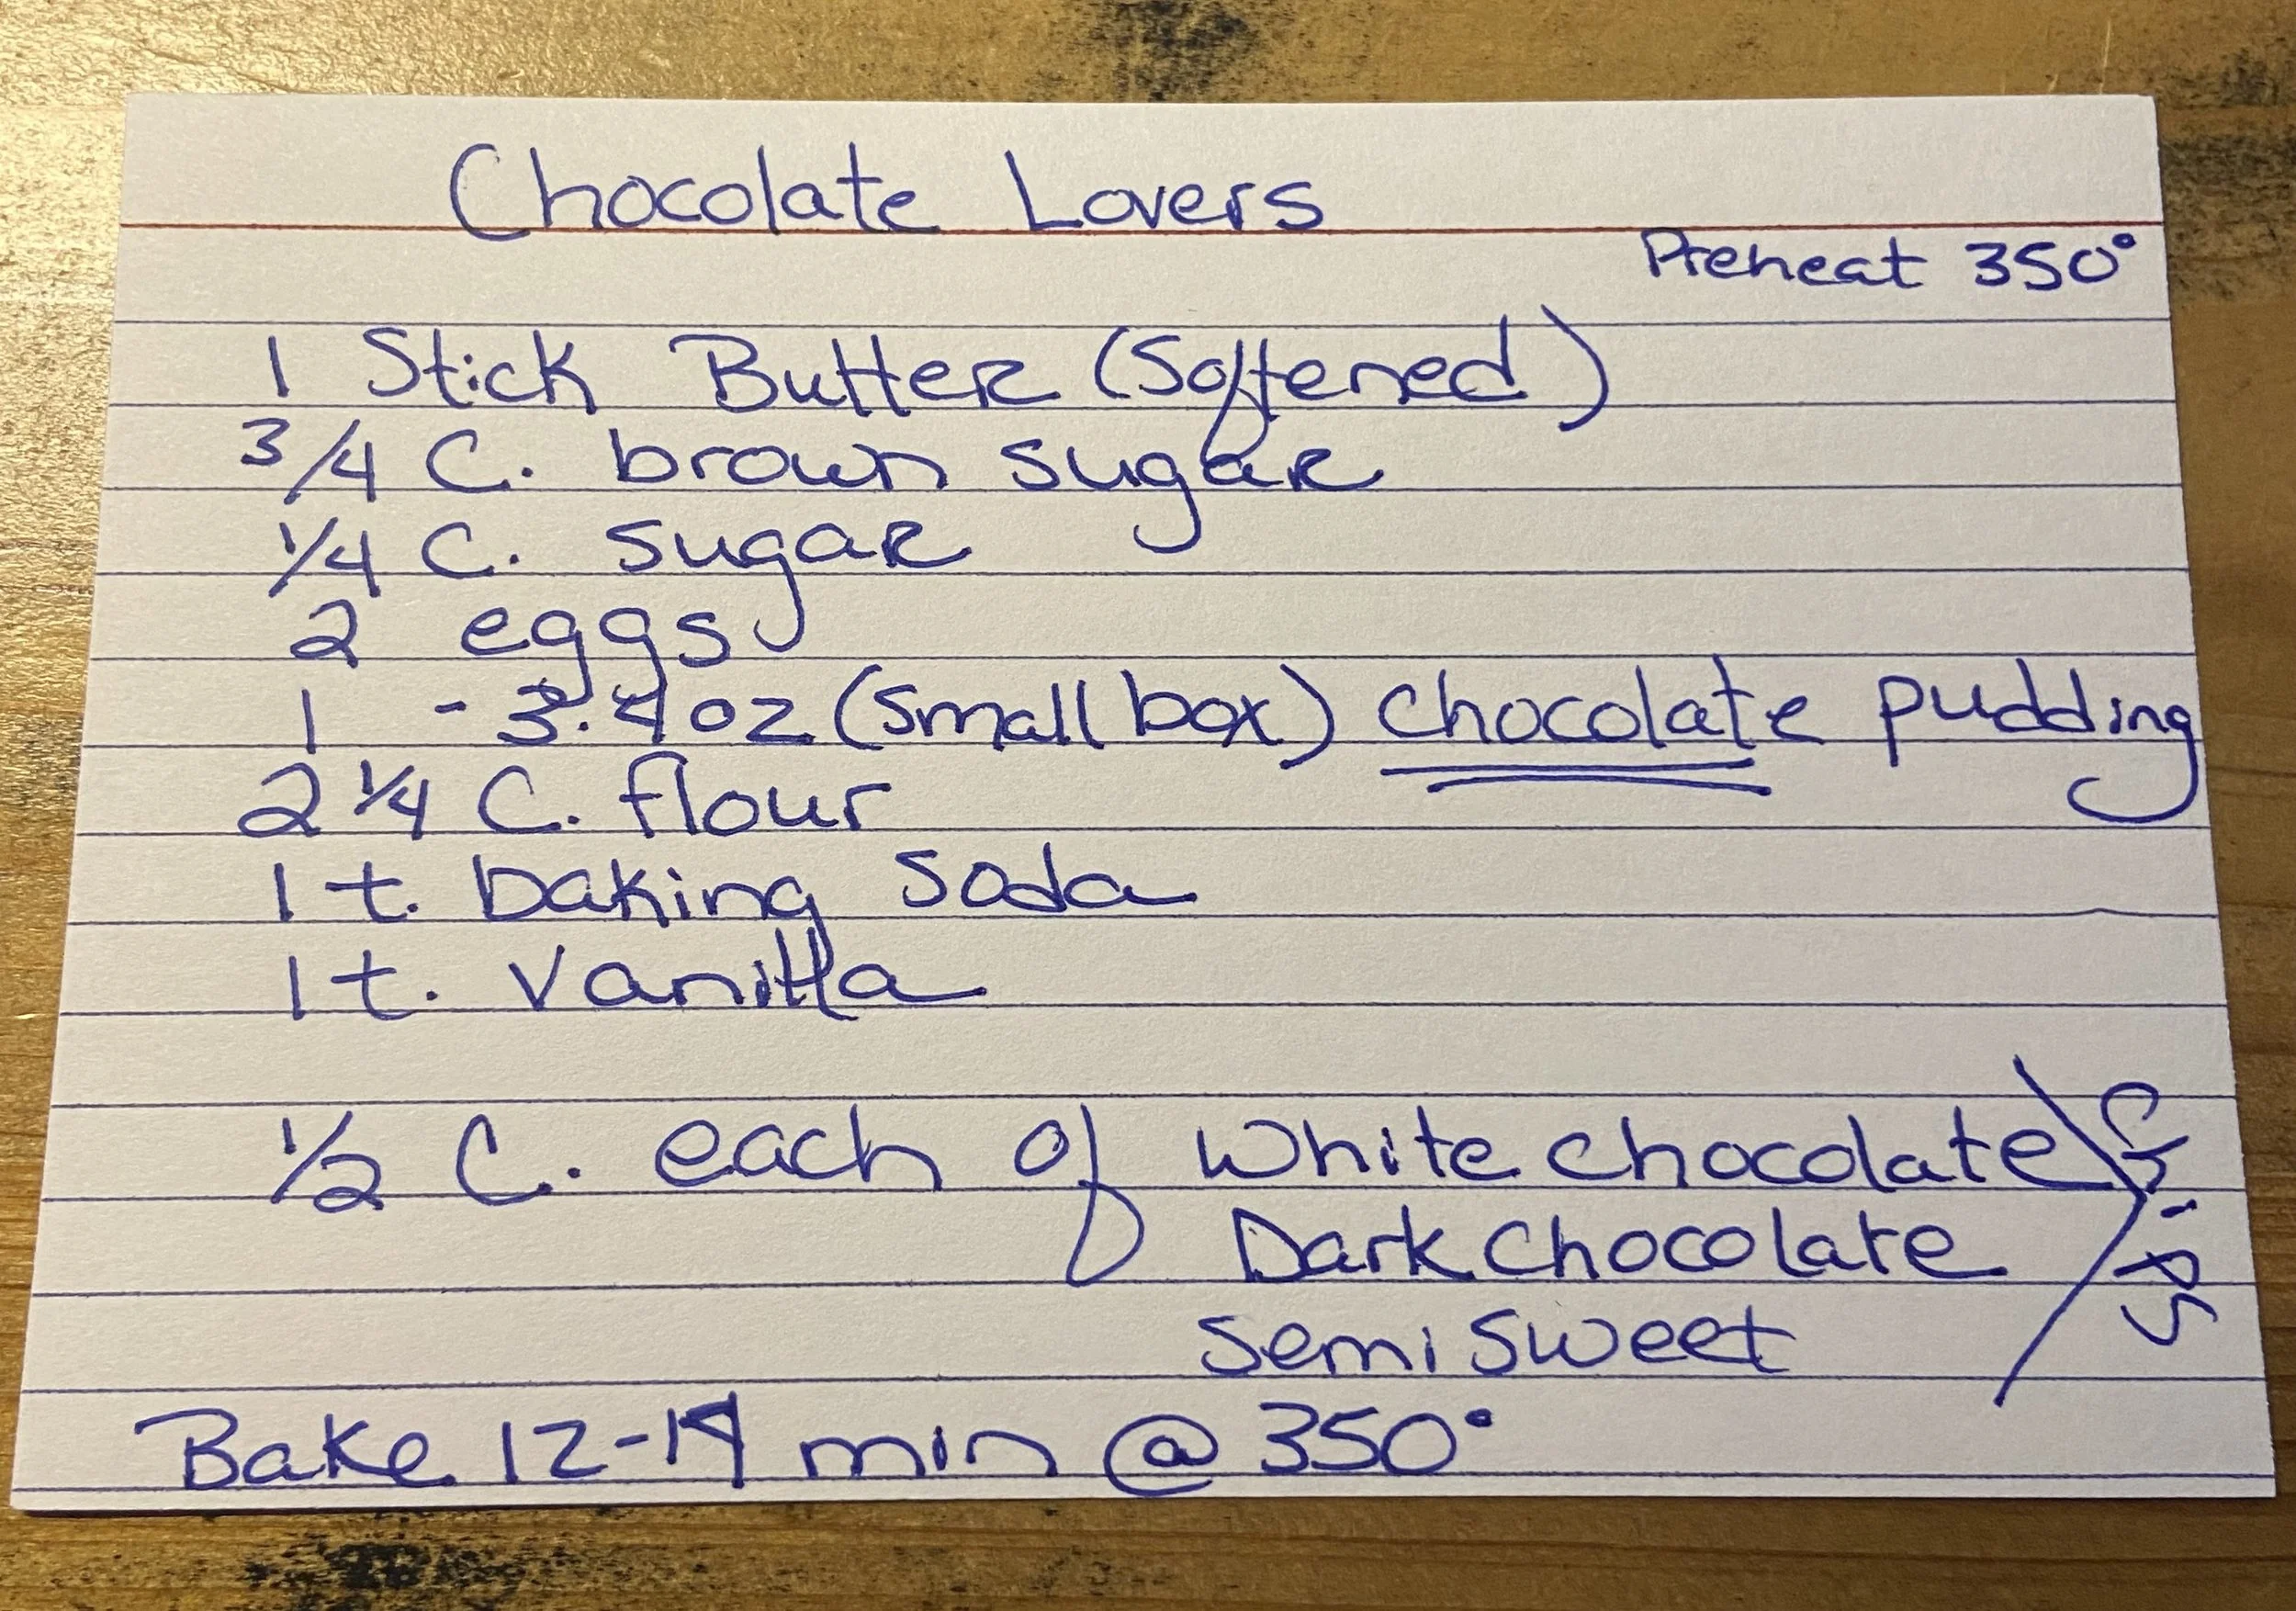 Chocolate Lovers
Preheat 350°
1 Stick Butter (Softened)
3/4 C. brown sugar
1/4 C. sugar
2 eggs
1 - 3.4 oz (small box) chocolate pudding
2 1/4 C. flour
1 t. baking soda
1 t. vanilla
1/2 C. each of white chocolate
Dark chocolate
semi sweet
chips
Bake 12-14 min @ 350°